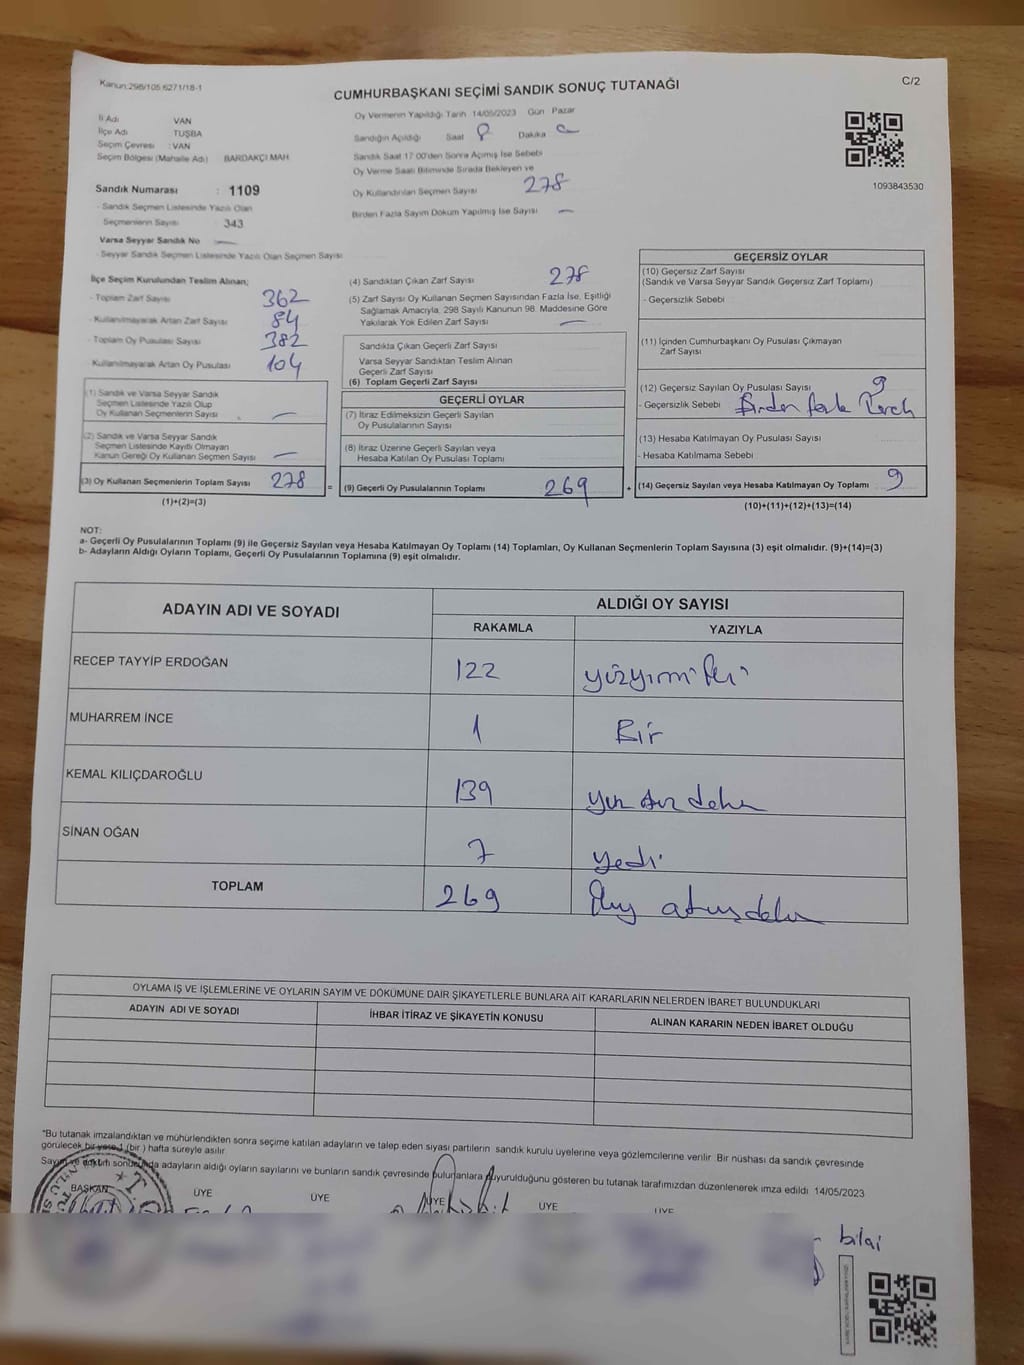 Kanun:298/105.6271/18-1
CUMHURBAŞKANI SEÇİMİ SANDIK SONUÇ TUTANAĞI
C/2
İl Adı VAN
İlçe Adı TUŞBA
Seçim Çevresi : VAN
Seçim Bölgesi (Mahalle Adı) BARDAKÇI MAH.
Sandık Numarası : 1109
- Sandık Seçmen Listesinde Yazılı Olan
Seçmenlerin Sayısı 343
Varsa Seyyar Sandık No —
- Seyyar Sandık Seçmen Listesinde Yazılı Olan Seçmen Sayısı
Oy Vermenin Yapıldığı Tarih 14/05/2023 Gün Pazar
Sandığın Açıldığı Saat 8 Dakika
Sandık Saat 17:00'den Sonra Açımış İse Sebebi
Oy Verme Saati Bitiminde Sırada Bekleyen ve
Oy Kullandırılan Seçmen Sayısı 278
Birden Fazla Sayım Döküm Yapılmış İse Sayısı —
1093843530
İlçe Seçim Kurulundan Teslim Alınan;
- Toplam Zarf Sayısı 362
- Kullanılmayarak Artan Zarf Sayısı 84
- Toplam Oy Pusulası Sayısı 382
Kullanılmayarak Artan Oy Pusulası 104
(1) Sandık ve Varsa Seyyar Sandık
Seçmen Listesinde Yazılı Olup
Oy Kullanan Seçmenlerin Sayısı —
(2) Sandık ve Varsa Seyyar Sandık
Seçmen Listesinde Kayıtlı Olmayan
Kanun Gereği Oy Kullanan Seçmen Sayısı —
(3) Oy Kullanan Seçmenlerin Toplam Sayısı 278
(1)+(2)=(3)
(4) Sandıktan Çıkan Zarf Sayısı 278
(5) Zarf Sayısı Oy Kullanan Seçmen Sayısından Fazla İse, Eşitliği
Sağlamak Amacıyla, 298 Sayılı Kanunun 98. Maddesine Göre
Yakılarak Yok Edilen Zarf Sayısı —
Sandıkta Çıkan Geçerli Zarf Sayısı
Varsa Seyyar Sandıktan Teslim Alınan
Geçerli Zarf Sayısı
(6) Toplam Geçerli Zarf Sayısı
GEÇERLİ OYLAR
(7) İtiraz Edilmeksizin Geçerli Sayılan
Oy Pusulalarının Sayısı
(8) İtiraz Üzerine Geçerli Sayılan veya
Hesaba Katılan Oy Pusulası Toplamı
= (9) Geçerli Oy Pusulalarının Toplamı 269
GEÇERSİZ OYLAR
(10) Geçersiz Zarf Sayısı
(Sandık ve Varsa Seyyar Sandık Geçersiz Zarf Toplamı)
- Geçersizlik Sebebi
(11) İçinden Cumhurbaşkanı Oy Pusulası Çıkmayan
Zarf Sayısı
(12) Geçersiz Sayılan Oy Pusulası Sayısı 9
- Geçersizlik Sebebi Birden fazla
(13) Hesaba Katılmayan Oy Pusulası Sayısı
- Hesaba Katılmama Sebebi
+ (14) Geçersiz Sayılan veya Hesaba Katılmayan Oy Toplamı 9
(10)+(11)+(12)+(13)=(14)
NOT:
a- Geçerli Oy Pusulalarının Toplamı (9) ile Geçersiz Sayılan veya Hesaba Katılmayan Oy Toplamı (14) Toplamları, Oy Kullanan Seçmenlerin Toplam Sayısına (3) eşit olmalıdır. (9)+(14)=(3)
b- Adayların Aldığı Oyların Toplamı, Geçerli Oy Pusulalarının Toplamına (9) eşit olmalıdır.
ADAYIN ADI VE SOYADI
ALDIĞI OY SAYISI
RAKAMLA YAZIYLA
RECEP TAYYİP ERDOĞAN 122 yüzyirmi iki
MUHARREM İNCE 1 Bir
KEMAL KILIÇDAROĞLU 139 yüz otuz dokuz
SİNAN OĞAN 7 yedi
TOPLAM 269 İkiyüz altmışdokuz
OYLAMA İŞ VE İŞLEMLERİNE VE OYLARIN SAYIM VE DÖKÜMÜNE DAİR ŞİKAYETLERLE BUNLARA AİT KARARLARIN NELERDEN İBARET BULUNDUKLARI
ADAYIN ADI VE SOYADI İHBAR İTİRAZ VE ŞİKAYETİN KONUSU ALINAN KARARIN NEDEN İBARET OLDUĞU
*Bu tutanak imzalandıktan ve mühürlendikten sonra seçime katılan adayların ve talep eden siyasi partilerin sandık kurulu üyelerine veya gözlemcilerine verilir. Bir nüshası da sandık çevresinde
görülecek bir yere 1 (bir ) hafta süreyle asılır.
Sayım ve döküm sonucunda adayların aldığı oyların sayılarını ve bunların sandık çevresinde bulunanlara duyurulduğunu gösteren bu tutanak tarafımızdan düzenlenerek imza edildi. 14/05/2023
BAŞKAN ÜYE ÜYE ÜYE ÜYE ÜYE
bilgi